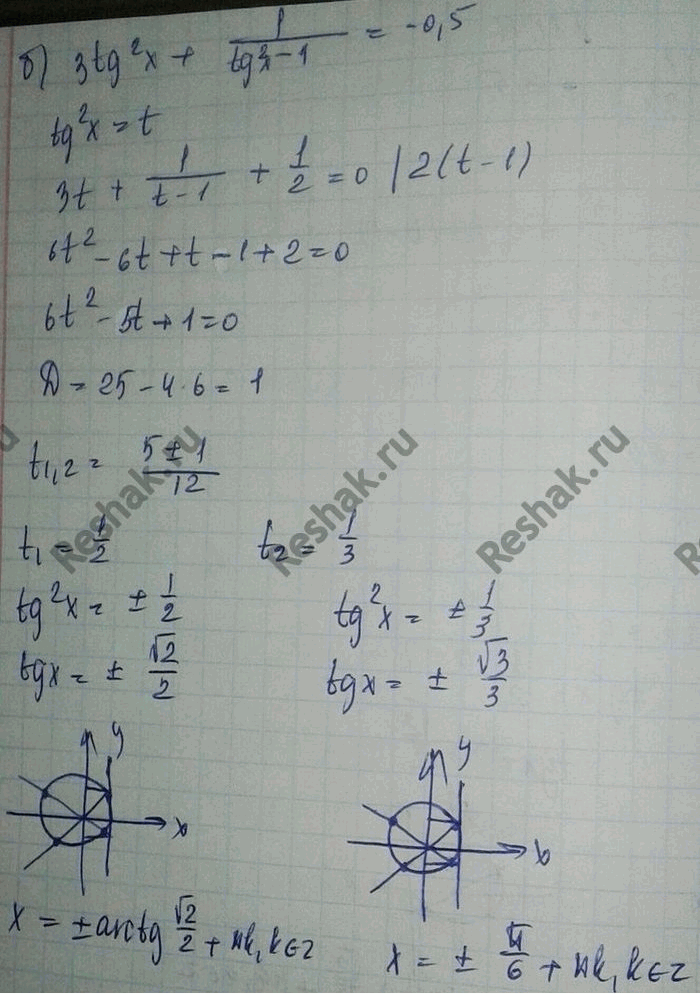 б) 3tg²x + 1/(tg²x - 1) = -0,5
tg²x = t
3t + 1/(t-1) + 1/2 = 0 | 2(t-1)
6t² - 6t + t - 1 + 2 = 0
6t² - 5t + 1 = 0
D = 25 - 4·6 = 1
t1,2 = (5 ± 1)/12
t1 = 1/2 t2 = 1/3
tg²x = ± 1/2 tg²x = ± 1/3
tgx = ± √2/2 tgx = ± √3/3
y y
x x
x = ± arctg √2/2 + πk, k ∈ z
x = ± π/6 + πk, k ∈ z
Reshak.ru
Reshak.ru
Reshak.ru